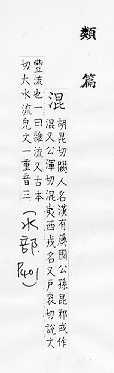 類篇
混 胡昆切闕人名漢有國公孫昆邪或作
混又公渾切混夷西戎名又戶袞切說文
豐流也一曰雜流又古本
切大水流皃文一重音三(水部 P401)